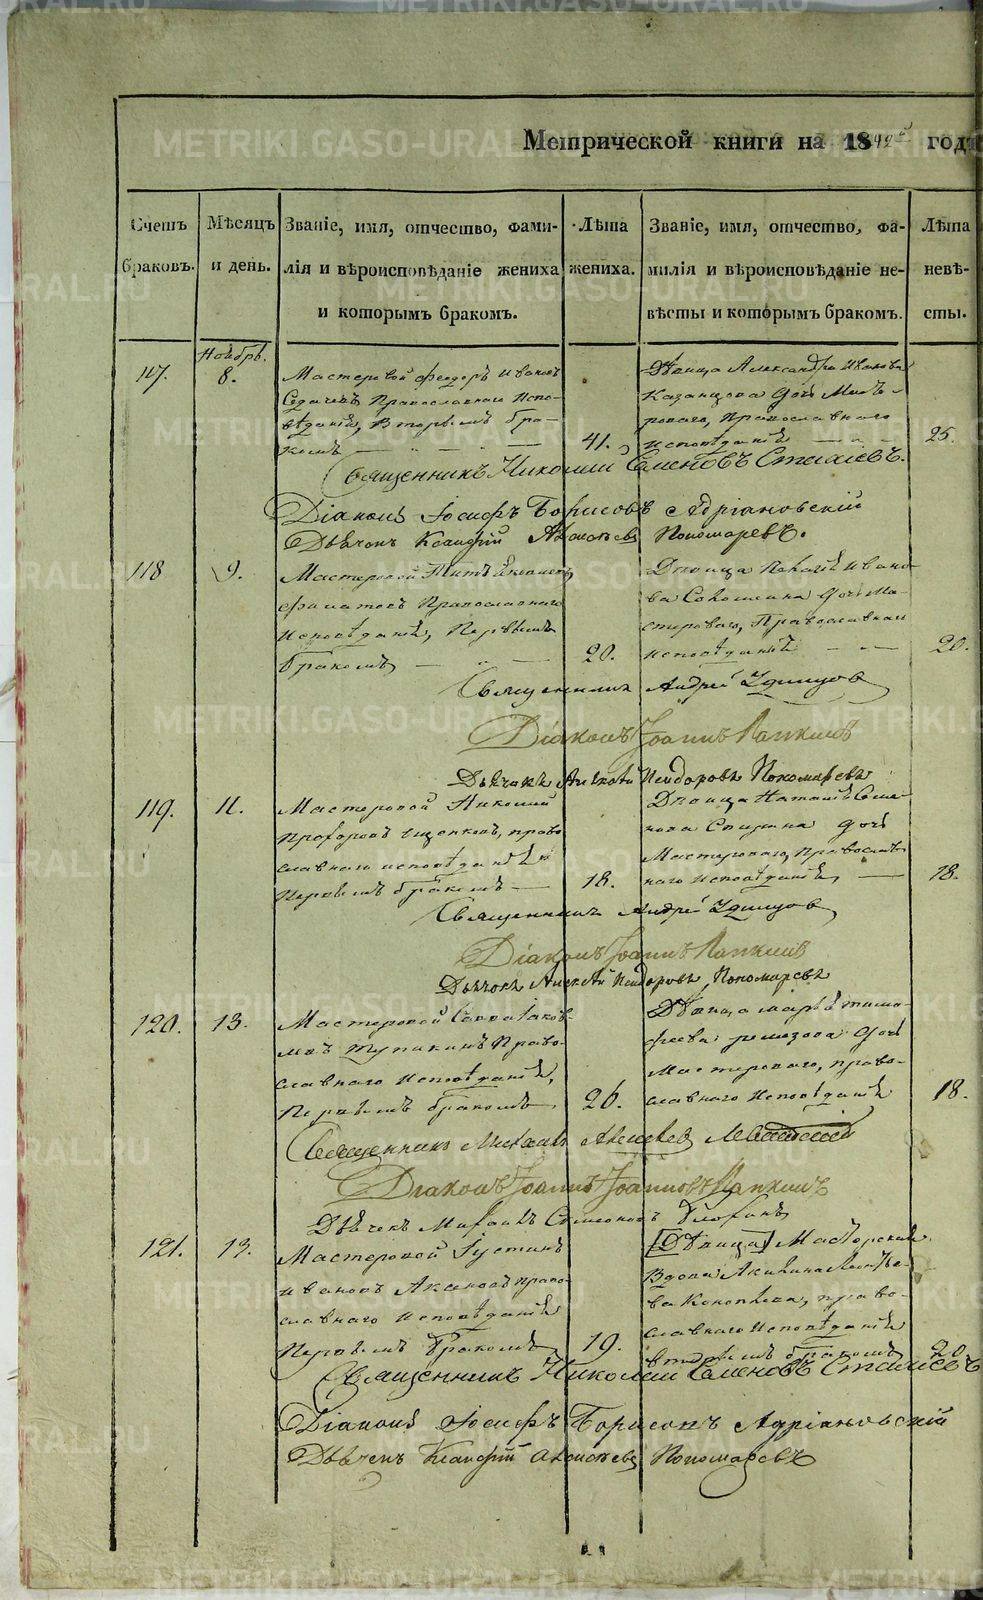 Метрической книги на 1842й годъ
Счетъ браковъ.
Мѣсяцъ и день.
Званіе, имя, отчество, фами-
лія и вѣроисповѣданіе жениха
и которымъ бракомъ.
Лѣта жениха.
Званіе, имя, отчество, фа-
милія и вѣроисповѣданіе не-
вѣсты и которымъ бракомъ.
Лѣта невѣ-
сты.
Ноябрь.
117.
8.
Мастеровой Феодоръ Ивановъ
Православнаго Испо-
вѣданія, Вторымъ бра-
комъ
41.
Дѣвица Александра Иванова
Казанцова дочь Масте-
роваго, Православнаго
исповѣданія
25.
Священникъ Николай Семеновъ
Діаконъ Іосифъ Борисовъ Адріановскій
Дьячекъ Алексѣевъ Пономаревъ.
118
9.
Мастеровой Титъ
Православнаго
Исповѣданія, Первымъ
бракомъ
20.
Дѣвица Ивано-
ва дочь Ма-
стероваго, Православнаго
исповѣданія
20.
Священникъ Андрей Удинцов
Діаконъ Іоаннъ Лапкинъ
Дьячекъ Алексѣй Исидоровъ Пономаревъ
119.
11.
Мастеровой
Прохоровъ право-
славнаго исповѣданія
Первымъ бракомъ
18.
Дѣвица Наталія Семе-
нова дочь
Мастероваго, Православ-
наго Исповѣданія,
18.
Священникъ Андрей Удинцов
Діаконъ Іоаннъ Лапкинъ
Дьячекъ Алексѣй Исидоровъ Пономаревъ
120.
13.
Мастеровой Савва Яковле-
въ Право-
славнаго Исповѣданія,
Первымъ бракомъ
26.
Дѣвица Тимо-
феева Ремезова дочь
Мастероваго, право-
славнаго Исповѣданія
18.
Священникъ Михаилъ Алексѣевъ
Діаконъ Іоаннъ Іоанновъ Лапкинъ
Дьячекъ Михаилъ Симеоновъ
121.
13.
Мастеровой Іустинъ
Ивановъ Аксеновъ право-
славнаго Исповѣданія
Первымъ бракомъ
19.
[Дѣвица] Мастерская
Вдова Акилина Леонтье-
ва, право-
славнаго Исповѣданія
вторымъ бракомъ
20
Священникъ Николай Семеновъ
Діаконъ Іосифъ Борисовъ Адріановскій
Дьячекъ Алексѣевъ Пономаревъ
METRIKI.GASO-URAL.RU